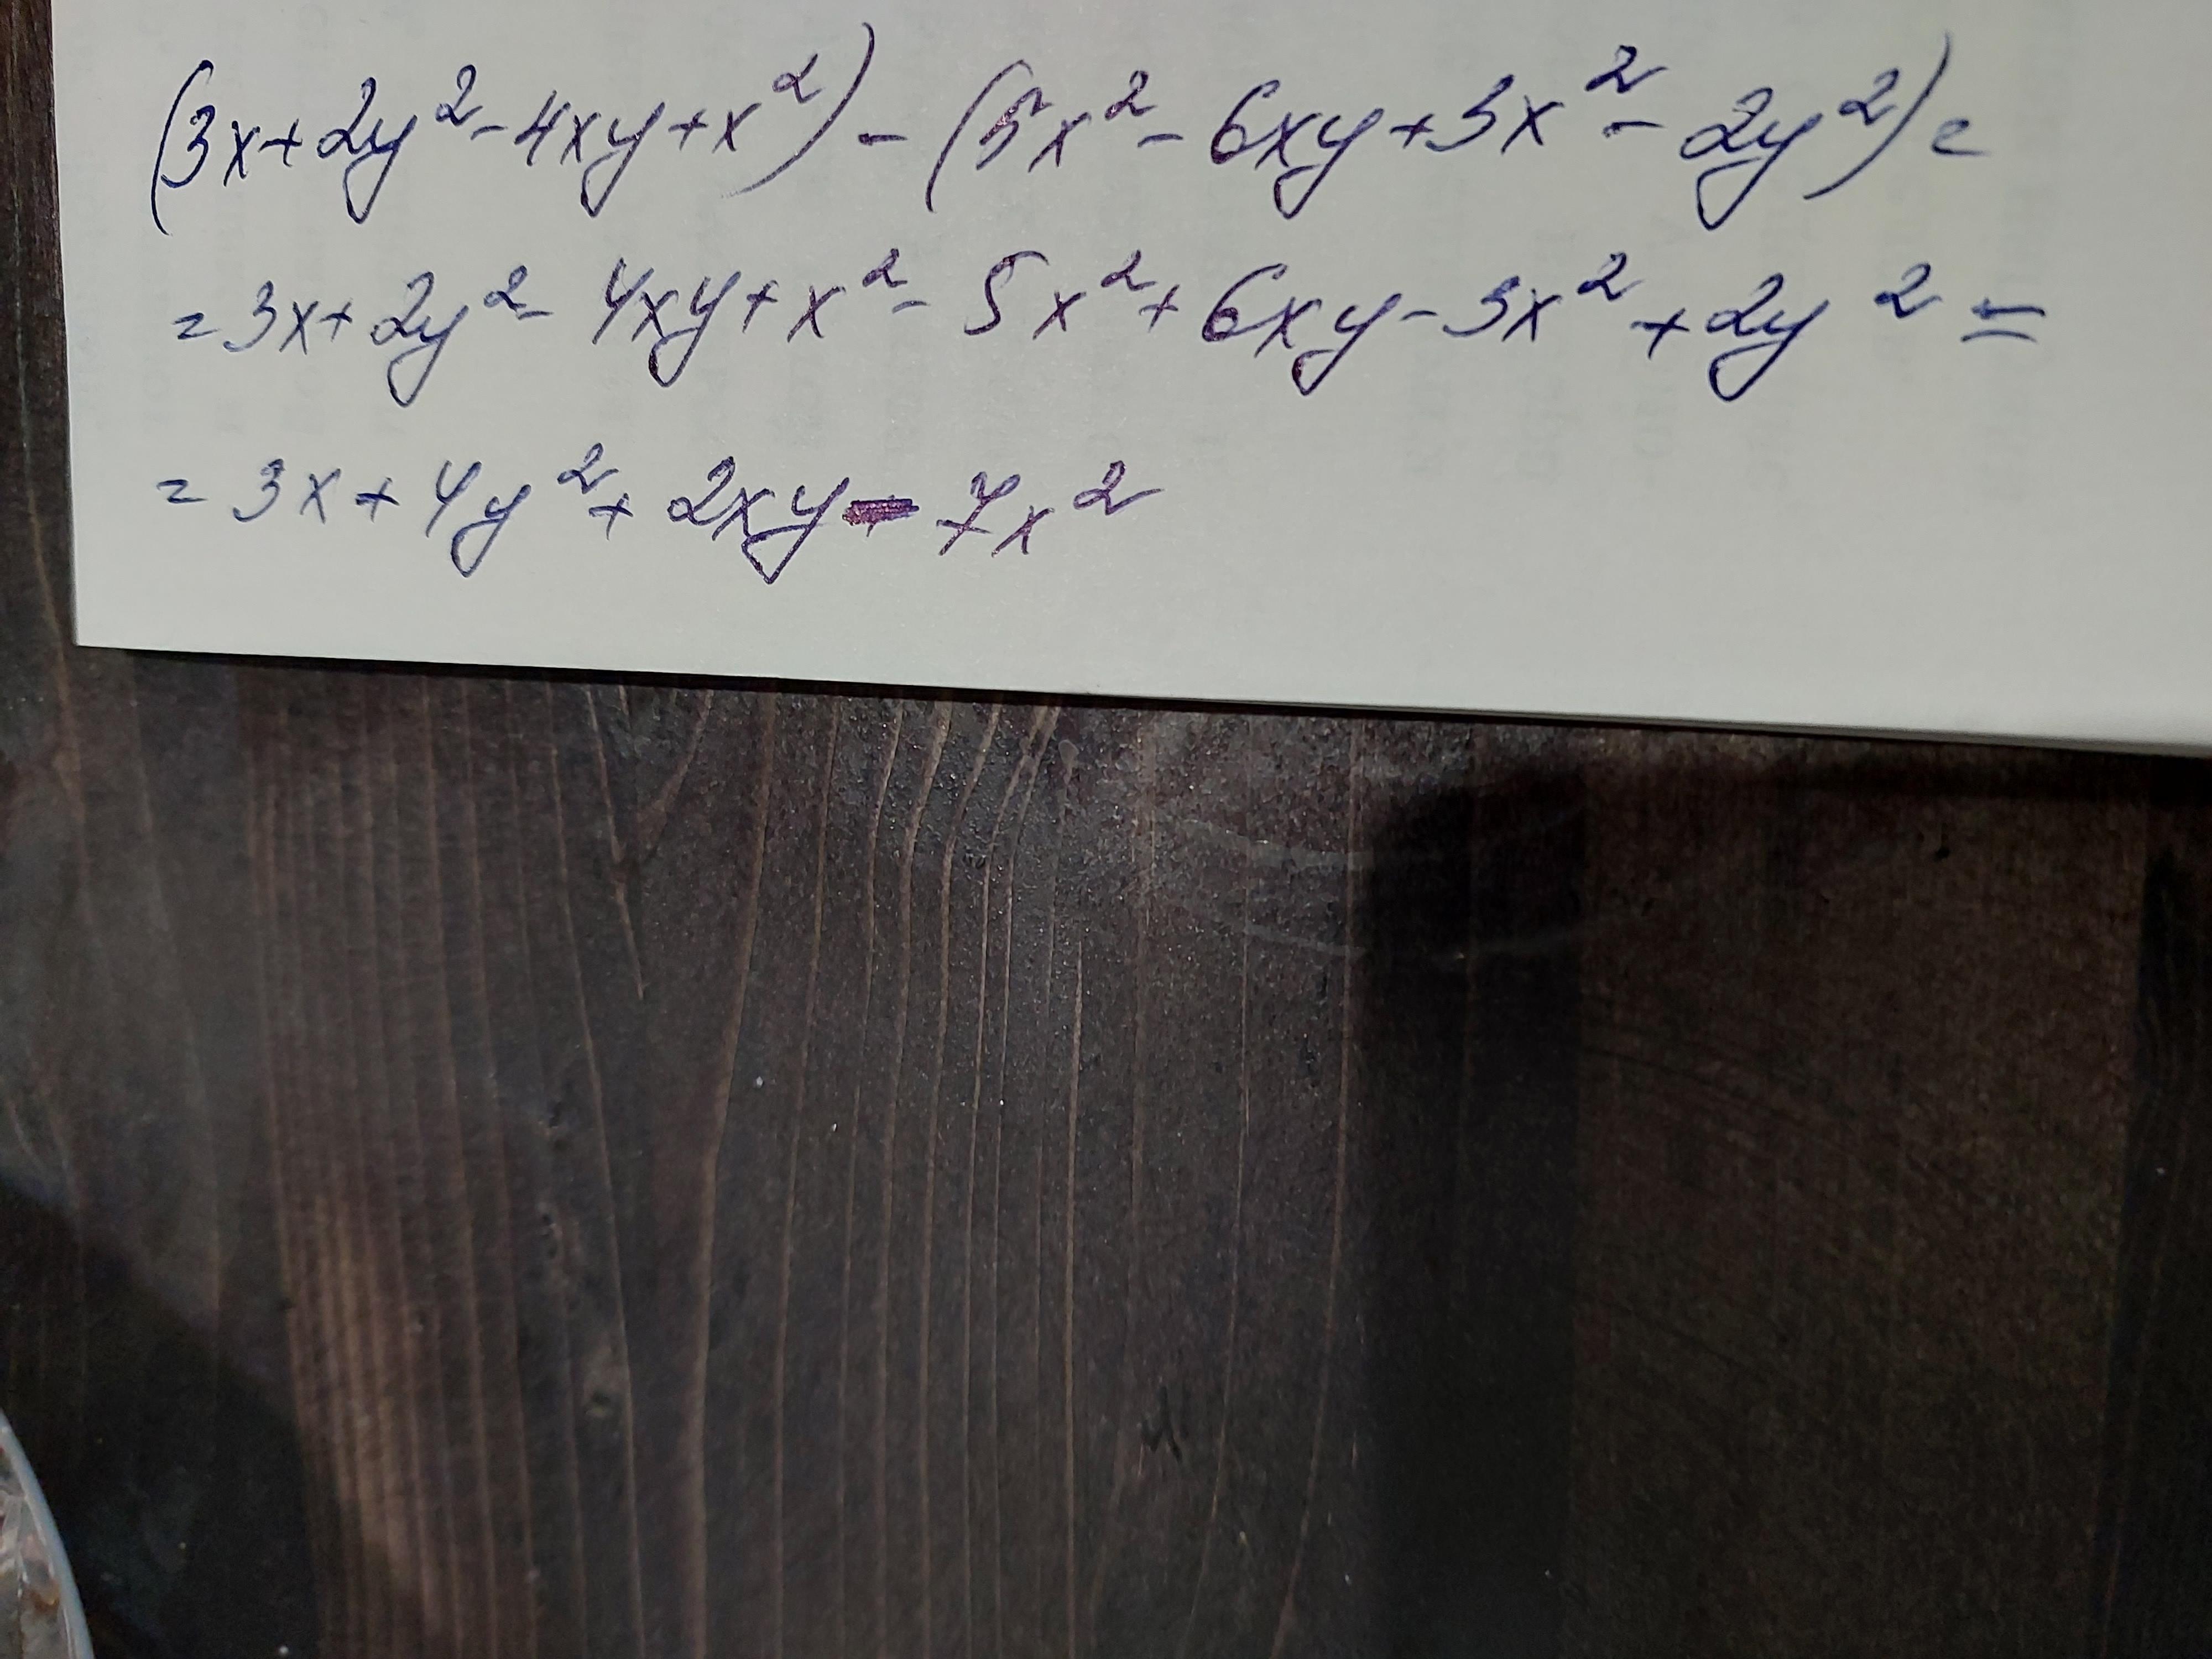 (3x+2y²-4xy+x²)-(5x²-6xy+3x²-2y²)=
=3x+2y²-4xy+x²-5x²+6xy-3x²+2y²=
=3x+4y²+2xy-7x²